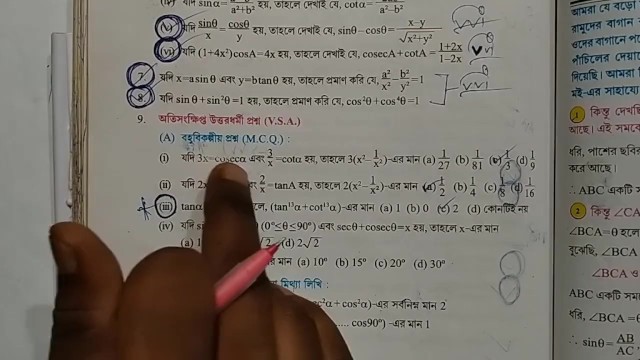 (iv) যদি sinα= a²+b² হয়, তাহলে দেখাই যে, cotα= a²−b²
(v) যদি sinθ/x = cosθ/y হয়, তাহলে দেখাই যে, sinθ−cosθ= x−y/√x²+y²
(vi) যদি (1+4x²)cosA=4x হয়, তাহলে দেখাই যে, cosecA+cotA= 1+2x/1−2x
7. যদি x=asinθ এবং y=btanθ হয়, তাহলে প্রমাণ করি যে, a²/x² − b²/y² =1
8. যদি sinθ+sin²θ=1 হয়, তাহলে প্রমাণ করি যে, cos²θ+cos⁴θ=1
9. অতিসংক্ষিপ্ত উত্তরধর্মী প্রশ্ন (V.S.A.)
(A) বহুবিকল্পীয় প্রশ্ন (M.C.Q.) :
(i) যদি 3x=cosecα এবং 3/x=cotα হয়, তাহলে 3(x²−1/x²)-এর মান (a) 1/27 (b) 1/81 (c) 1/3 (d) 1/9
(ii) যদি 2x 2/x=tanA হয়, তাহলে 2(x²−1/x²)-এর মান (a) 1/2 (b) 1/4 (c) 1/8 (d) 1/16
(iii) tanα (tan¹³α+cot¹³α)-এর মান (a) 1 (b) 0 (c) 2 (d) কোনটিই নয়
(iv) যদি (0°≤θ≤90°) এবং secθ+cosecθ=x হয়, তাহলে x-এর মান
(a) 1 √2 (d) 2√2
মান (a) 10° (b) 15° (c) 20° (d) 30°
মিথ্যা লিখি :
α+cos²α)-এর সর্বনিম্ন মান 2
cos90°)-এর মান 1
আমরা যে
ওদের বাগানে
পাঁচিলের
দিয়েছি। আমরা
মই-এর সাহায্যে
1 কিন্তু
আছে। এই
ধরি, পাশের ছবির
করে আছে।
∴ ABC একটি
2 কিন্তু ∠CA
∠BCA=θ হলে
বুঝেছি, ∠BCA
∠BCA ও
ABC একটি
ধরি, ∠BCA=θ
∴ sinθ= AB/AC